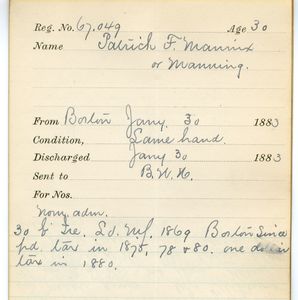 Reg. No. 67,049 Age 30
Name Patrick F. Mannix
or Manning.
From Boston Jany. 30 1883
Condition, Lame hand.
Discharged Jany 30 1883
Sent to B.W.H.
For Nos.
Nony. adm.
30 b Ire. Ld. 1869 Boston Since
pd. tax in 1875, 78 & 80. one
tax in 1880.